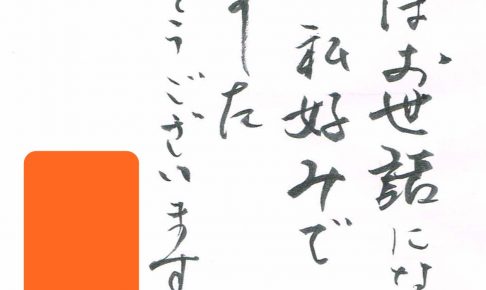 はお世話にな
私好みで
すた
うございます